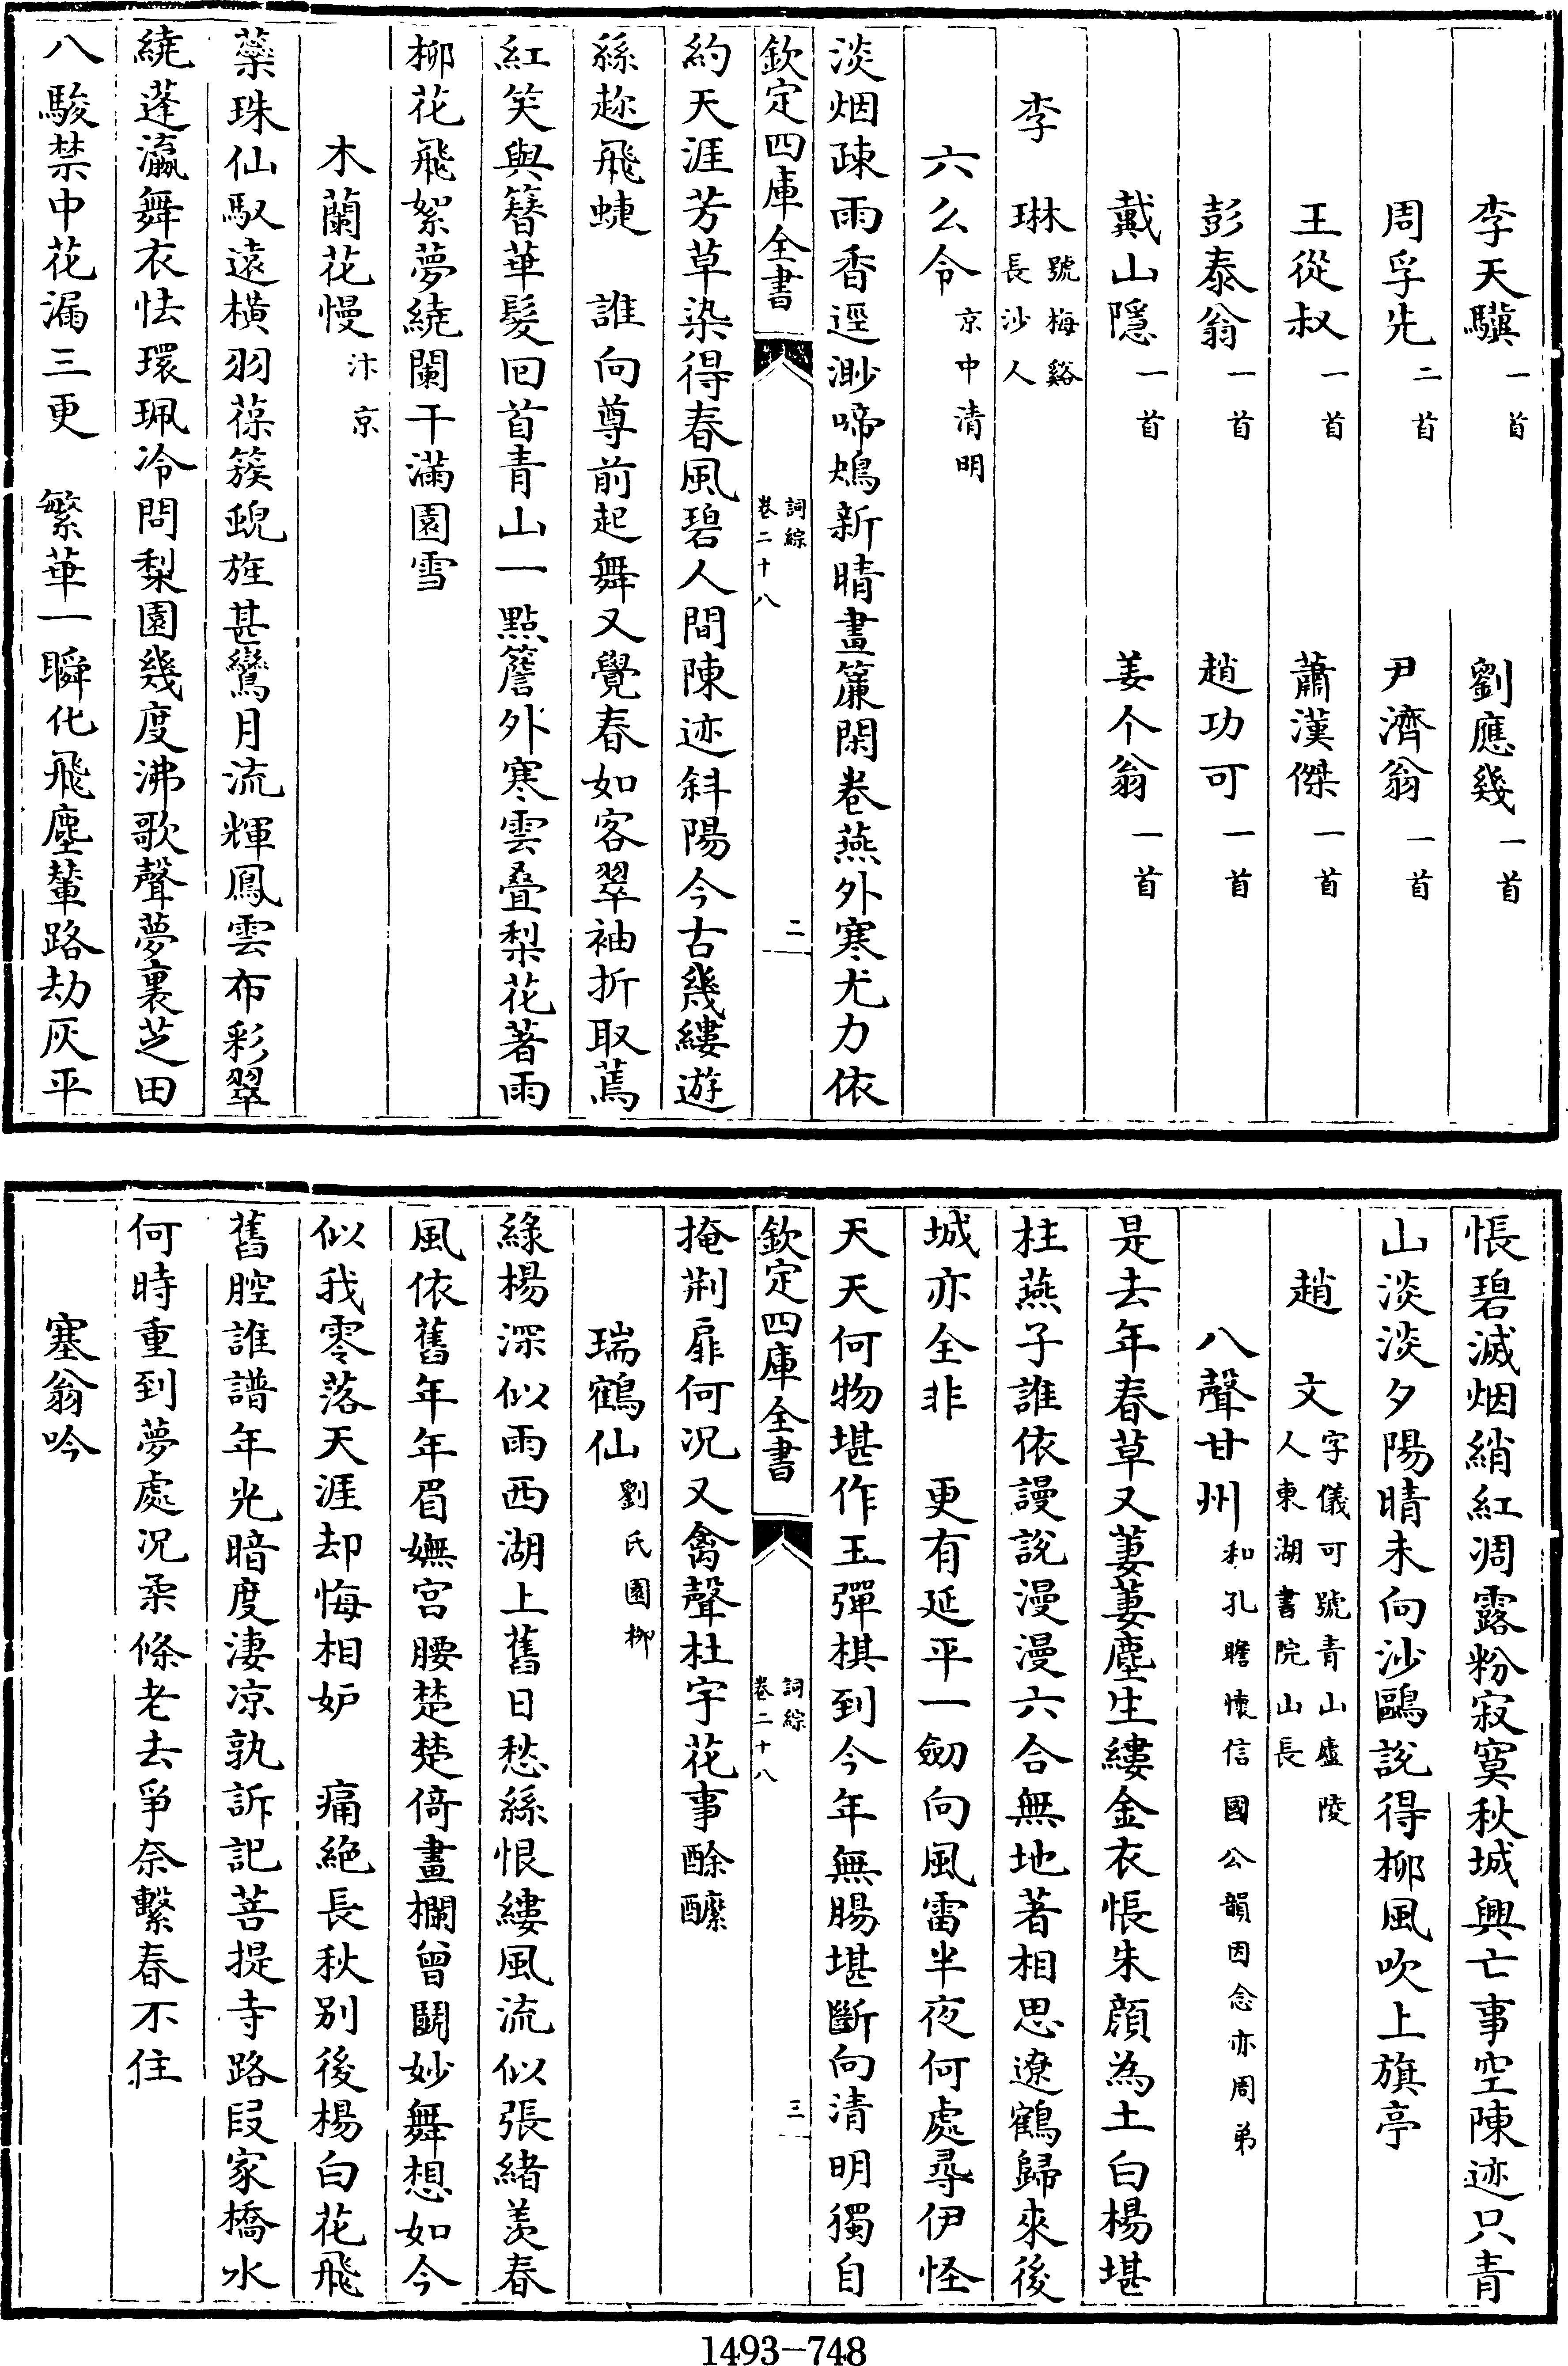 李天驥一首　劉應幾一首
周孚先二首　尹濟翁一首
王從叔一首　蕭漢傑一首
彭泰翁一首　趙功可一首
戴山隱一首　姜个翁一首
李　琳號梅谿長沙人
六么令京中清明
淡烟疎雨香逕渺啼鴂新晴畫簾閑卷燕外寒尤力依
欽定四庫全書　詞綜卷二十八　二
約天涯芳草染得春風碧人間陳迹斜陽今古幾縷遊
絲趂飛蜨　誰向尊前起舞又覺春如客翠袖折取蔫
紅笑與簪華髮回首青山一點簷外寒雲疊梨花著雨
柳花飛絮夢繞闌干滿園雪
木蘭花慢汴京
蘂珠仙馭遠橫羽葆簇蜺旌甚鸞月流輝鳳雲布彩翠
繞蓬瀛舞衣怯環珮冷問梨園幾度沸歌聲夢裏芝田
八駿禁中花漏三更　繁華一瞬化飛塵輦路劫灰平
悵碧滅烟綃紅凋露粉寂寞秋城興亡事空陳迹只青
山淡淡夕陽晴未向沙鷗說得柳風吹上旗亭
趙　文字儀可號青山廬陵人東湖書院山長
八聲甘州和孔瞻懷信國公韻因念亦周弟
是去年春草又萋萋塵生縷金衣悵朱顏為土白楊堪
柱燕子誰依謾說漫漫六合無地著相思遼鶴歸來後
城亦全非　更有延平一劒向風雷半夜何處尋伊怪
天天何物堪作玉彈棋到今年無腸堪斷向清明獨自
欽定四庫全書　詞綜卷二十八　三
掩荆扉何况又禽聲杜宇花事酴醾
瑞鶴仙劉氏園柳
綠楊深似雨西湖上舊日愁絲恨縷風流似張緒羨春
風依舊年年眉嫵宮腰楚楚倚畫欄曾鬭妙舞想如今
似我零落天涯却悔相妒　痛絕長秋別後楊白花飛
舊腔誰譜年光暗度淒凉孰訴記菩提寺路段家橋水
何時重到夢處况柔條老去爭奈繫春不住
塞翁吟
1493-748